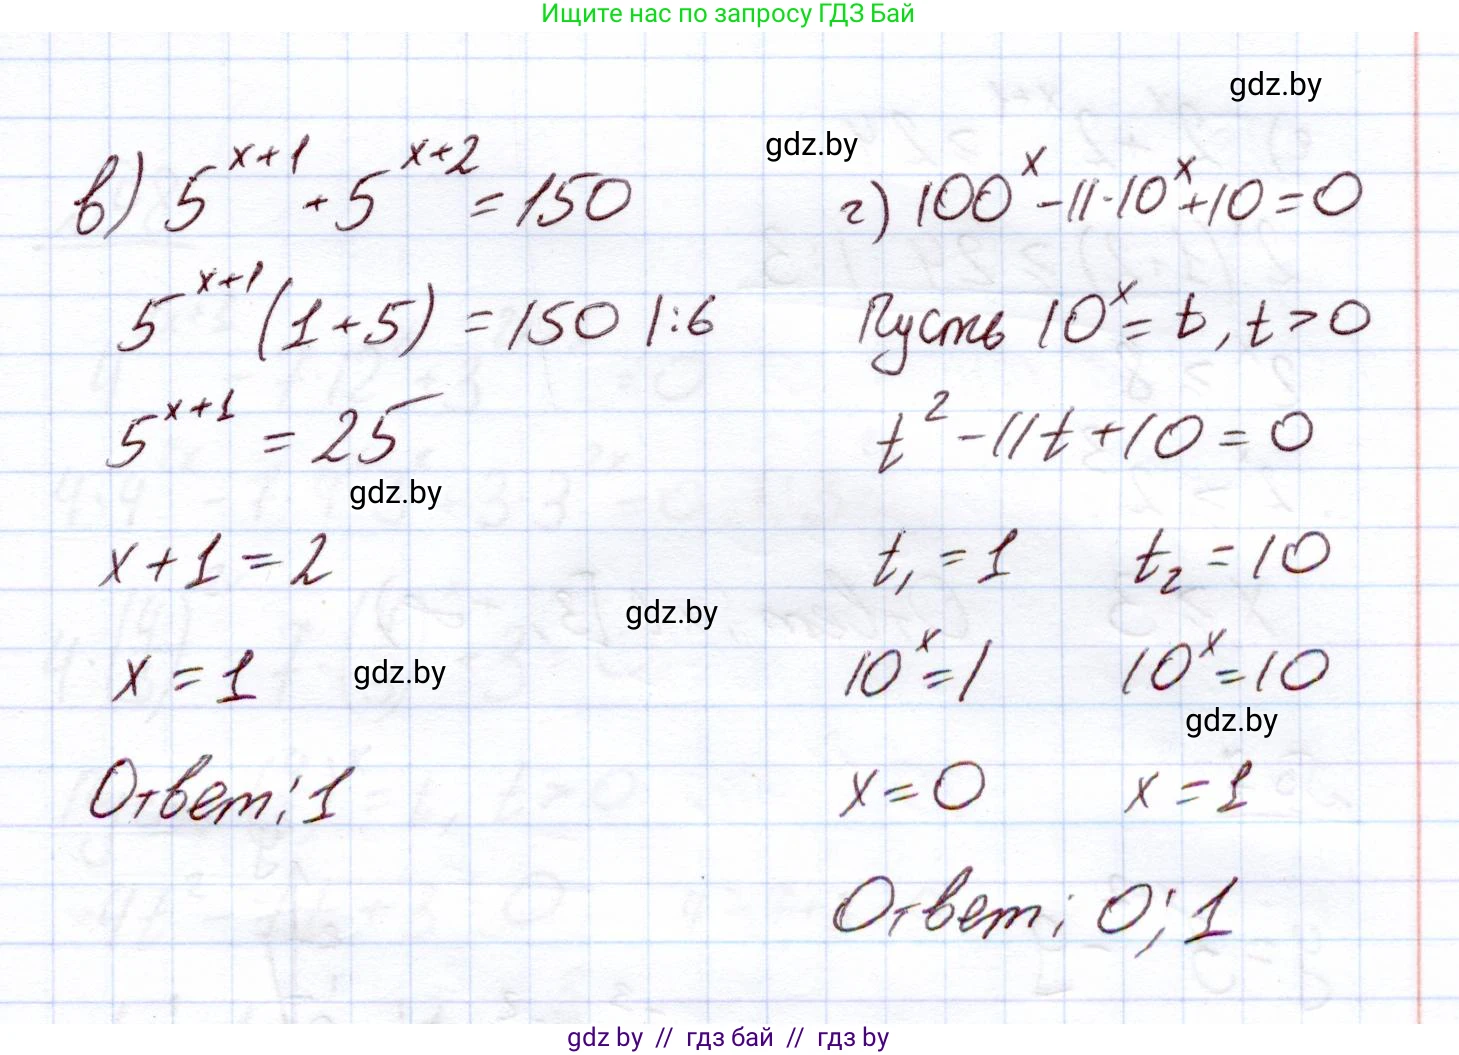 Ищите нас по запросу ГДЗ Бай
gdz.by
gdz.by
в) 5^(x+1) + 5^(x+2) = 150
5^(x+1) (1+5) = 150 |:6
5^(x+1) = 25
gdz.by
x+1=2
gdz.by
x=1
gdz.by
Ответ: 1
г) 100^x - 11·10^x + 10 = 0
Пусть 10^x = t, t > 0
t² - 11t + 10 = 0
t₁ = 1 t₂ = 10
10^x = 1 10^x = 10
gdz.by
x = 0 x = 1
Ответ: 0; 1
gdz by // гдз бай // гдз by